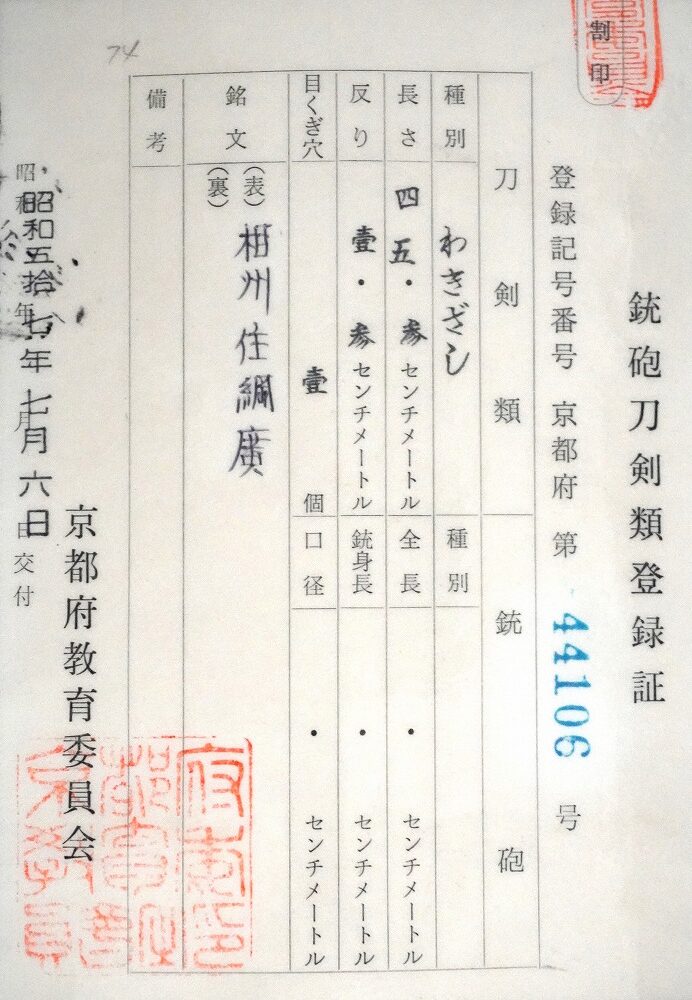 銃砲刀剣類登録証
割印
登録記号番号 京都府 第 44106 号
刀剣類
種別 わきざし
長さ 四五・参センチメートル
反り 壹・参センチメートル
目くぎ穴 壹個
銃砲
種別
全長 ・ センチメートル
銃身長 ・ センチメートル
口径 ・ センチメートル
銘文 (表) 相州住綱廣
(裏)
備考
昭和五拾七年七月六日交付
京都府教育委員会
74